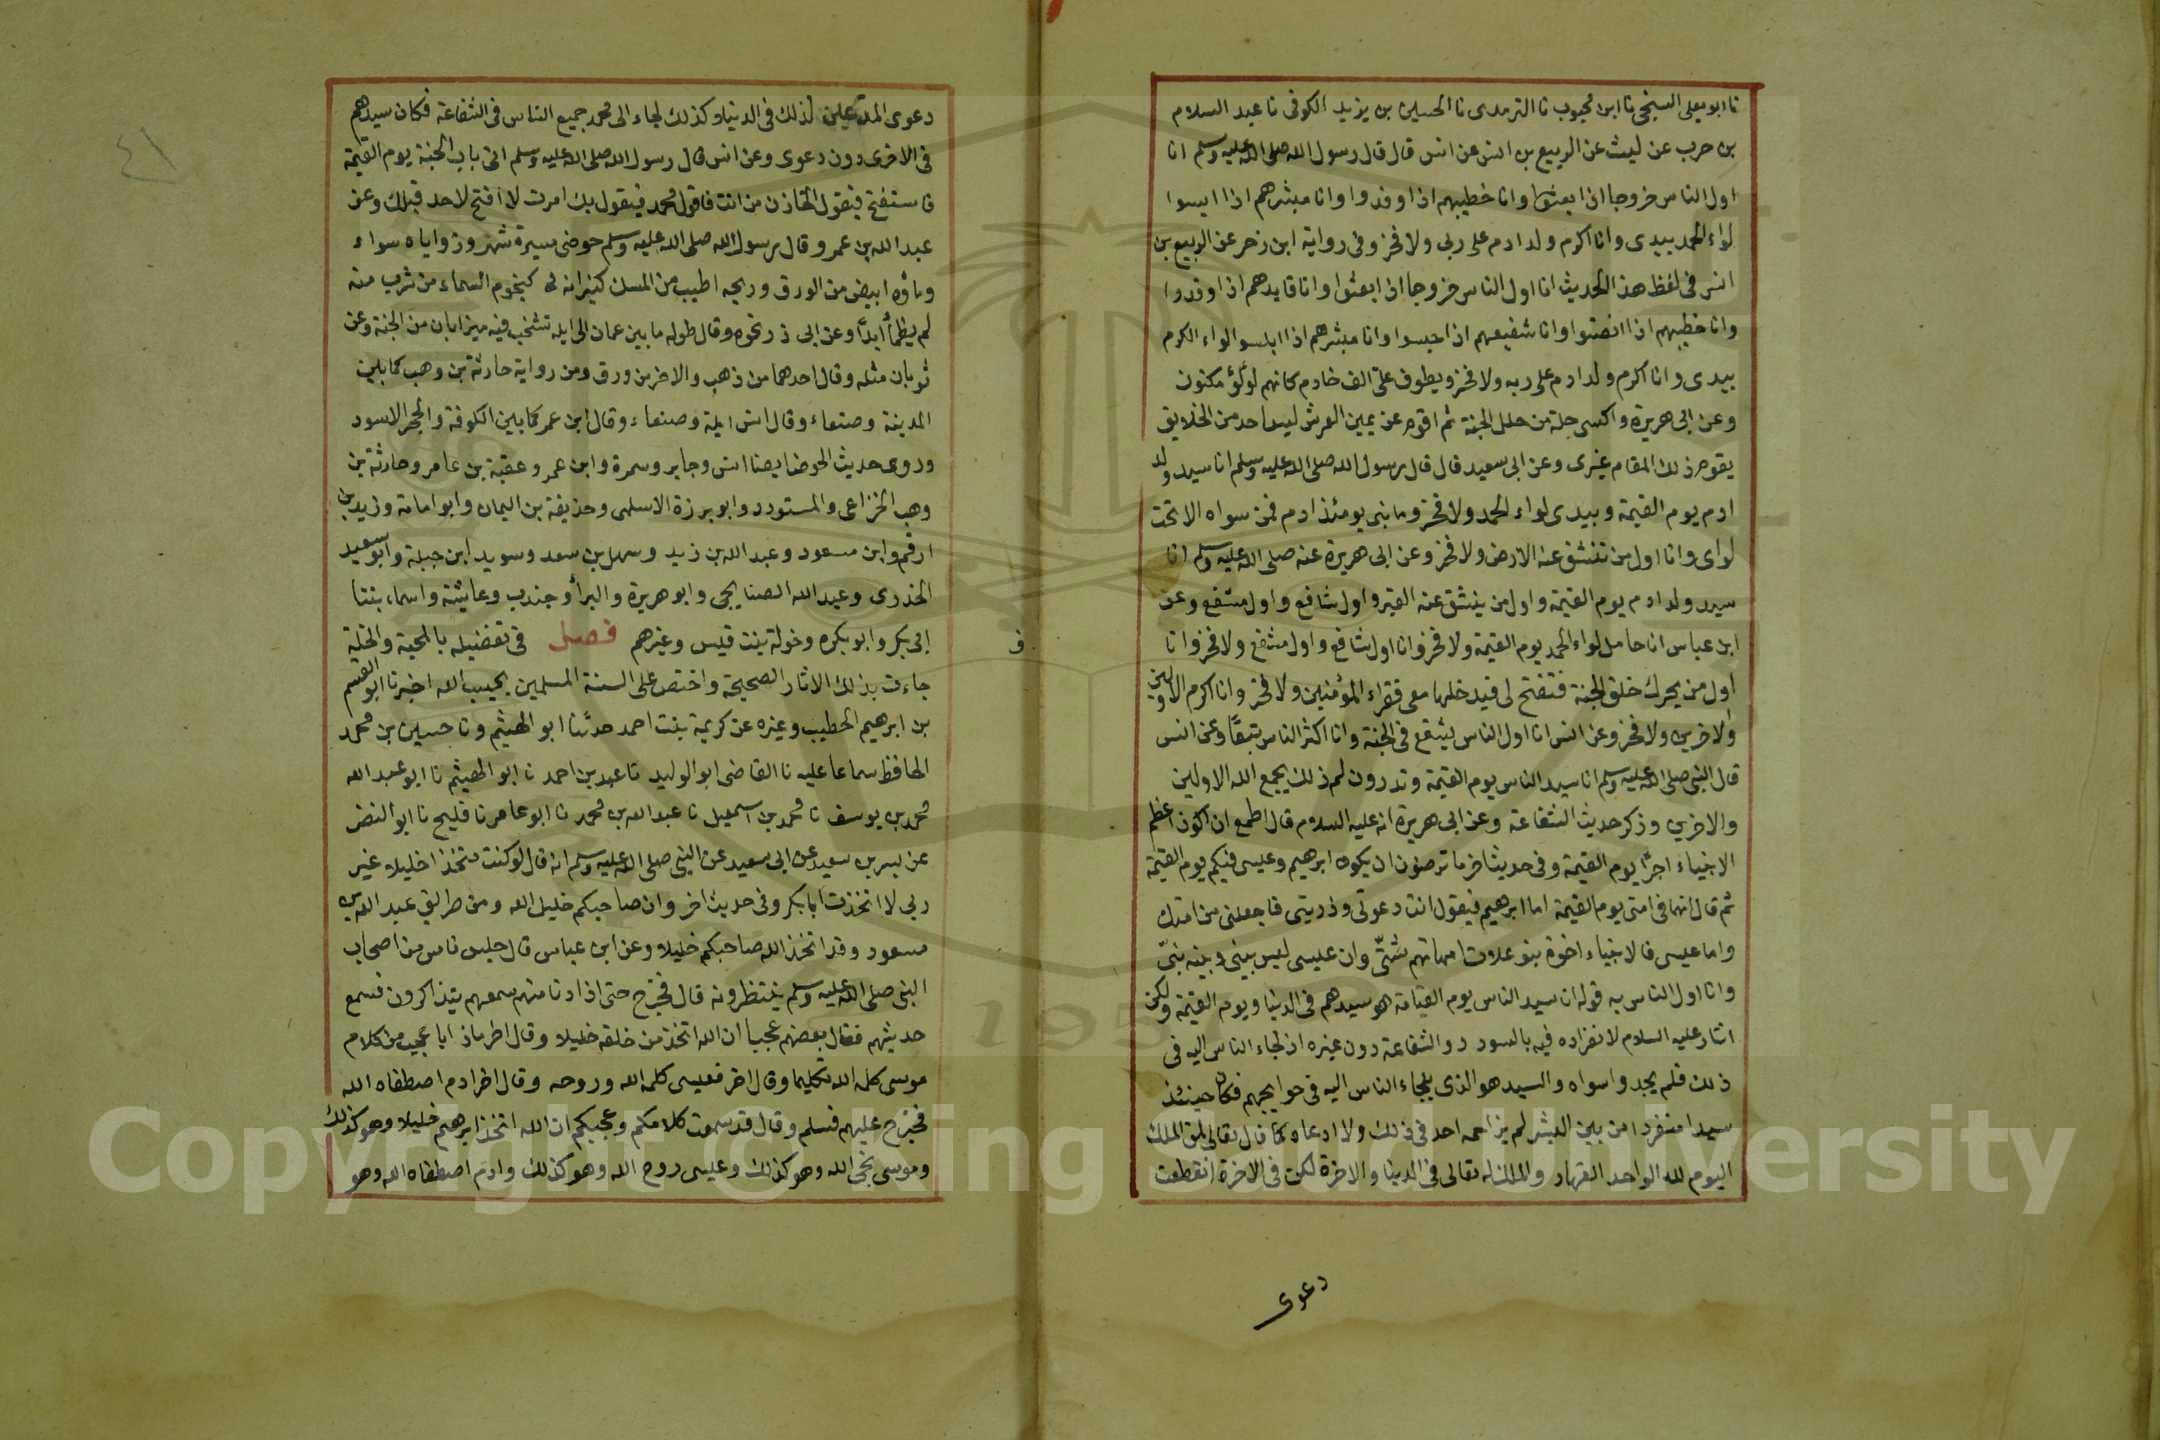 نا ابو يعلى السنجى نا ابن محبوب نا الترمذى نا الحسين بن يزيد الكوفى نا عبد السلام
بن حرب عن ليث عن الربيع بن انس عن انس قال قال رسول الله صلى الله عليه وسلم انا
اول الناس خروجا اذا بعثوا وانا خطيبهم اذا وفدوا وانا مبشرهم اذا ايسوا
لواء الحمد بيدى وانا اكرم ولد ادم على ربى ولا فخر وفى رواية ابن زحر عن الربيع بن
انس فى لفظ هذا الحديث انا اول الناس خروجا اذا بعثوا وانا قايدهم اذا وفدوا
وانا خطيبهم اذا انصتوا وانا شفيعهم اذا حبسوا وانا مبشرهم اذا ابلسوا لواء الكرم
بيدى وانا اكرم ولد ادم على ربه ولا فخر ويطوف على الف خادم كانهم لؤلؤ مكنون
وعن ابى هريرة واكسى حلة من حلل الجنة ثم اقوم عن يمين العرش ليس احد من الخلايق
يقوم ذلك المقام غيرى وعن ابى سعيد قال قال رسول الله صلى الله عليه وسلم انا سيد ولد
ادم يوم القيمة وبيدى لواء الحمد ولا فخر وما نبى يومئذ ادم فمن سواه الا تحت
لواى وانا اول من تنشق عنه الارض ولا فخر وعن ابى هريرة عنه صلى الله عليه وسلم انا
سيد ولد ادم يوم القيمة واول من ينشق عنه القبر واول شافع واول مشفع وعن
ابن عباس انا حامل لواء الحمد يوم القيمة ولا فخر وانا اول شافع واول مشفع ولا فخر وانا
اول من يحرك خلق الجنة فتفتح لى فيدخلها معى فقراء المؤمنين ولا فخر وانا اكرم الاولين
والاخرين ولا فخر وعن انس انا اول الناس يشفع فى الجنة وانا اكثر الناس تبعًا وعن انس
قال النبى صلى الله عليه وسلم انا سيد الناس يوم القيمة وتدرون لم ذلك يجمع الله الاولين
والاخرين وذكر حديث الشفاعة وعن ابى هريرة انه عليه السلام قال اطمع ان اكون اعظم
الانبياء اجرًا يوم القيمة وفى حديث اخر ما ترضون ان يكون ابرهيم وعيسى فيكم يوم القيمة
ثم قال انهما فى امتى يوم القيمة اما ابرهيم فيقول انت دعوتى وذريتى فاجعلنى من امتك
واما عيسى فالانبياء اخوة بنو علات امهاتهم شتّى وان عيسى ليس بينى وبينه نبىّ
وانا اول الناس به قوله انا سيد الناس يوم القيامة هو سيدهم فى الدنيا ويوم القيمة ولكن
اشار عليه السلام لانفراده فيه بالسودد والشفاعة دون غيره اذ لجاء الناس اليه فى
ذلك فلم يجدوا سواه والسيد هو الذى يلجاء الناس اليه فى حوايجهم فكان حينئذ
سيدا منفردا من بين البشر لم يزاحمه احد فى ذلك ولا ادعاه كما قال تعالى لمن الملك
اليوم لله الواحد القهار والملك له تعالى فى الدنيا والاخرة لكن فى الاخرة انقطعت
دعوى
دعوى المدعين لذلك فى الدنيا وكذلك لجاء الى محمد جميع الناس فى الشفاعة فكان سيدهم
فى الاخرى دون دعوى وعن انس قال رسول الله صلى الله عليه وسلم اتى باب الجنة يوم القيمة
فاستفتح فيقول الخازن من انت فاقول محمد فيقول بك امرت لا افتح لاحد قبلك وعن
عبد الله بن عمرو قال رسول الله صلى الله عليه وسلم حوضى مسيرة شهر وزواياه سواء
وماؤه ابيض من الورق وريحه اطيب من المسك كيزانه كنجوم السماء من شرب منه
لم يظمأ ابدًا وعن ابى ذر نحوه وقال طوله ما بين عمان الى ايلة تشخب فيه ميزابان من الجنة وعن
ثوبان مثله وقال احدهما من ذهب والاخر من ورق ومن رواية حارثة بن وهب كما بين
المدينة وصنعاء وقال انس ايلة وصنعاء وقال ابن عمر كما بين الكوفة والحجر الاسود
وروى حديث الحوض ايضا انس وجابر وسمرة وابن عمر وعقبة بن عامر وحارثة بن
وهب الخزاعى والمستورد وابو برزة الاسلمى وحذيفة بن اليمان وابو امامة وزيد بن
ارقم وابن مسعود وعبد الله بن زيد وسهل بن سعد وسويد ابن جبلة وابو سعيد
الخدرى وعبد الله الصنابحى وابو هريرة والبرأ وجندب وعايشة واسماء بنتا
ابى بكر وابو بكره وخولة بنت قيس وغيرهم فصل فى تفضيله بالمحبة والخلة
جاءت بذلك الاثار الصحيحة واختص على السنة المسلمين بحبيب الله اخبرنا ابو القسم
بن ابرهيم الخطيب وغيره عن كريمة بنت احمد حدثنا ابو الهيثم ونا حسين بن محمد
الحافظ سماعا عليه نا القاضى ابو الوليد نا عبد بن احمد نا ابو الهيثم نا ابو عبد الله
محمد بن يوسف نا محمد بن اسمعيل نا عبد الله بن محمد نا ابو عامر نا فليح نا ابو النضر
عن بسر بن سعيد عن ابى سعيد عن النبى صلى الله عليه وسلم انه قال لو كنت متخذا خليلا غير
ربى لاتخذت ابا بكر وفى حديث اخر وان صاحبكم خليل الله ومن طريق عبد الله بن
مسعود وقد اتخذ الله صاحبكم خليلا وعن ابن عباس قال جلس ناس من اصحاب
النبى صلى الله عليه وسلم ينتظرونه قال فخرج حتى اذا دنا منهم سمعهم يتذاكرون فسمع
حديثهم فقال بعضهم عجبا ان الله اتخذ من خلقه خليلا وقال اخر ماذا باعجب من كلام
موسى كلمه الله تكليما وقال اخر فعيسى كلمة الله وروحه وقال اخر ادم اصطفاه الله
فخرج عليهم فسلم وقال قد سمعت كلامكم وعجبكم ان الله اتخذ ابرهيم خليلا وهو كذلك
وموسى نجى الله وهو كذلك وعيسى روح الله وهو كذلك وادم اصطفاه الله وهو
٤١
ف
Copyright © King Saud University
1957